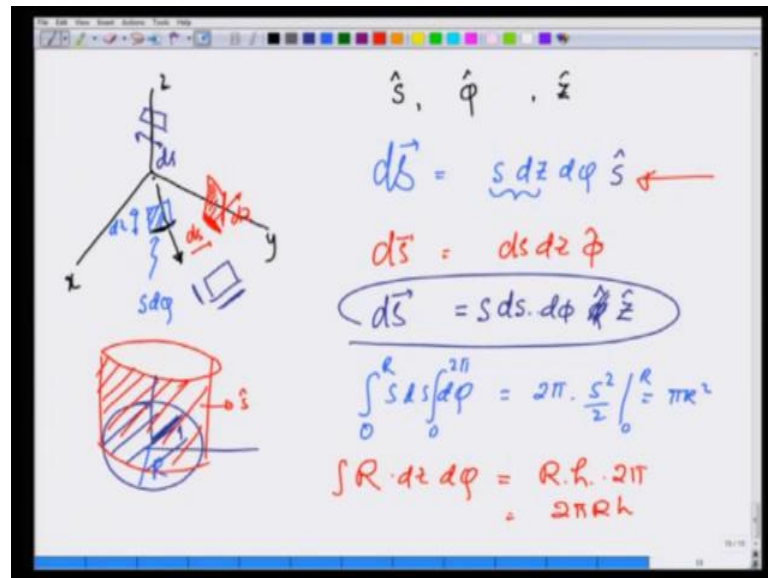 File Edit View Insert Actions Tools Help
ŝ, φ̂, ẑ
z
ds
dS⃗ = s dz dφ ŝ
dz
ds
dz
y
x
sdφ
ds⃗ = ds dz φ̂
ds⃗ = s ds. dφ ẑ
ŝ
R
∫₀ᴿ s ds ∫₀²π dφ = 2π · s²/2 |₀ᴿ = πR²
∫ R · dz dφ = R.h. 2π
= 2πRh